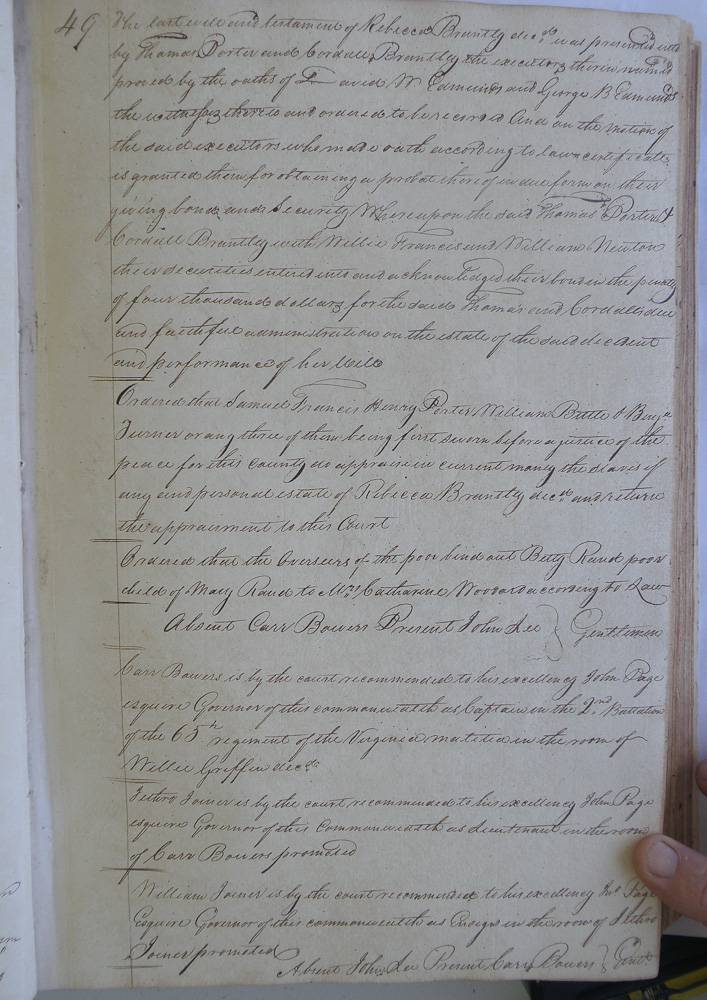 49
The last will and testament of Rebecca Brantly decd. was presented into
by Thomas Porter and Cordall Brantley the executors therein named
proved by the oaths of David W Edmunds and George B Edmunds
the witnesses thereto and ordered to be recorded And on the motion of
the said executors who made oath according to law certificate
is granted them for obtaining a probat thereof in due form on their
giving bond and Security Whereupon the said Thomas Porter &
Cordall Brantly with Willie Francis and William Newton
their securities entered into and acknowledged their bond in the penalty
of four thousand dollars for the said Thomas and Cordalls due
and faithful administration on the estate of the said decedent
and performance of her Will
Ordered that Samuel Francis Henry Porter William Bittle & Benja
Turner or any three of them being first sworn before a justice of the
peace for this County do appraise in current money the slaves if
any and personal estate of Rebecca Brantly decd. and return
the appraisment to this Court
Ordered that the Overseers of the poor bind out Betty Rand poor
child of Mary Rand to Mrs. Catharine Woodard according to Law
Absent Carr Bowers Present John Lee } Gentlemen
Carr Bowers is by the court recommended to his excellency John Page
esquire Governor of this commonwealth as Captain in the 2nd. Battalion
of the 65th regiment of the Virginia malitia in the room of
Willie Griffin decd.
Jethro Joiner is by the court recommended to his excellency John Page
esquire Governor of this Commonwealth as Lieutenant in the room
of Carr Bowers promoted
William Joiner is by the court recommended to his excellency Jno Page
Esquire Governor of this commonwealth as Ensign in the room of Jethro
Joiner promoted
Absent John Lee Present Carr Bowers } Gent